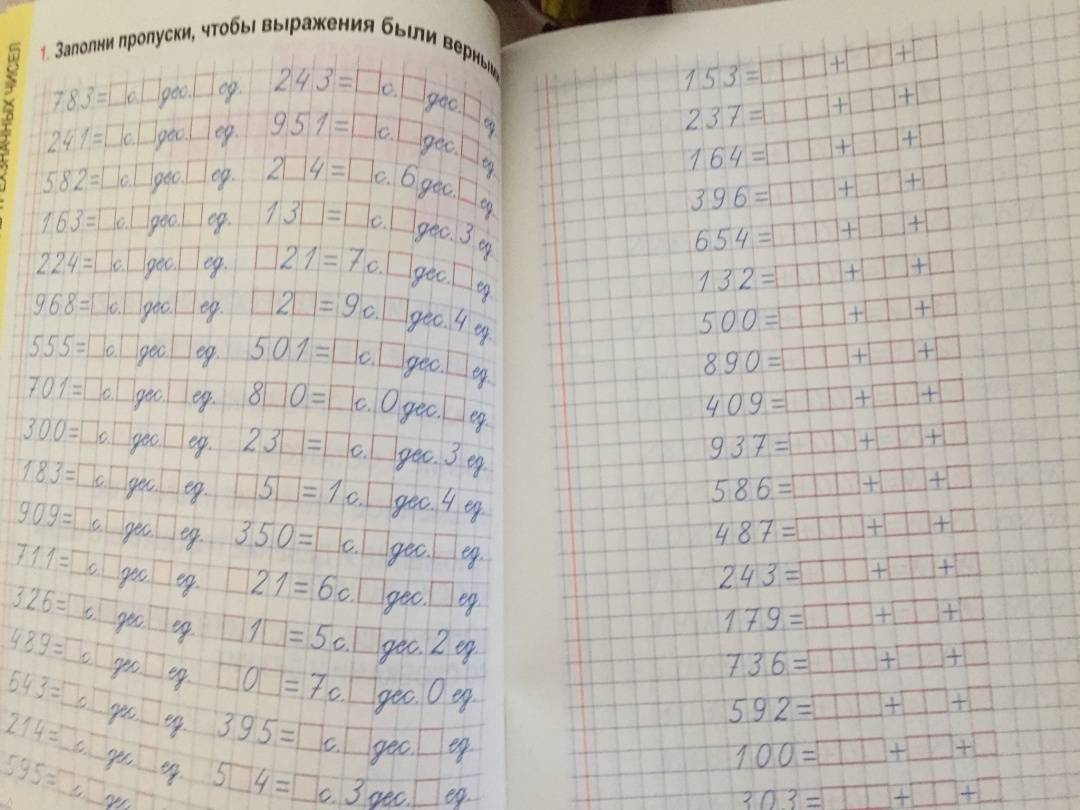 1. Заполни пропуски, чтобы выражения были верными
783=□с.□дес.□ед.
241=□с.□дес.□ед.
582=□с.□дес.□ед.
163=□с.□дес.□ед.
224=□с.□дес.□ед.
968=□с.□дес.□ед.
555=□с.□дес.□ед.
701=□с.□дес.□ед.
300=□с.□дес.□ед.
183=□с.□дес.□ед.
909=□с.□дес.□ед.
711=□с.□дес.□ед.
326=□с.□дес.□ед.
489=□с.□дес.□ед.
643=□с.□дес.□ед.
214=□с.□дес.□ед.
595=□с.□дес.
243=□с.□дес.□ед.
951=□с.□дес.□ед.
2□4=□с.6дес.□ед.
13□=□с.□дес.3ед.
□21=7с.□дес.□ед.
□2□=9с.□дес.4ед.
501=□с.□дес.□ед.
8□0=□с.0дес.□ед.
23□=□с.□дес.3ед.
□5□=1с.□дес.4ед.
350=□с.□дес.□ед.
□21=6с.□дес.□ед.
□1□=5с.□дес.2ед.
□0□=7с.□дес.0ед.
395=□с.□дес.□ед.
5□4=□с.3дес.□ед.
153=□□□+□□+□
237=□□□+□□+□
164=□□□+□□+□
396=□□□+□□+□
654=□□□+□□+□
132=□□□+□□+□
500=□□□+□□+□
890=□□□+□□+□
409=□□□+□□+□
937=□□□+□□+□
586=□□□+□□+□
487=□□□+□□+□
243=□□□+□□+□
179=□□□+□□+□
736=□□□+□□+□
592=□□□+□□+□
100=□□□+□□+□
303=□□□+□□+□
ТРЕХЗНАЧНЫХ ЧИСЕЛ